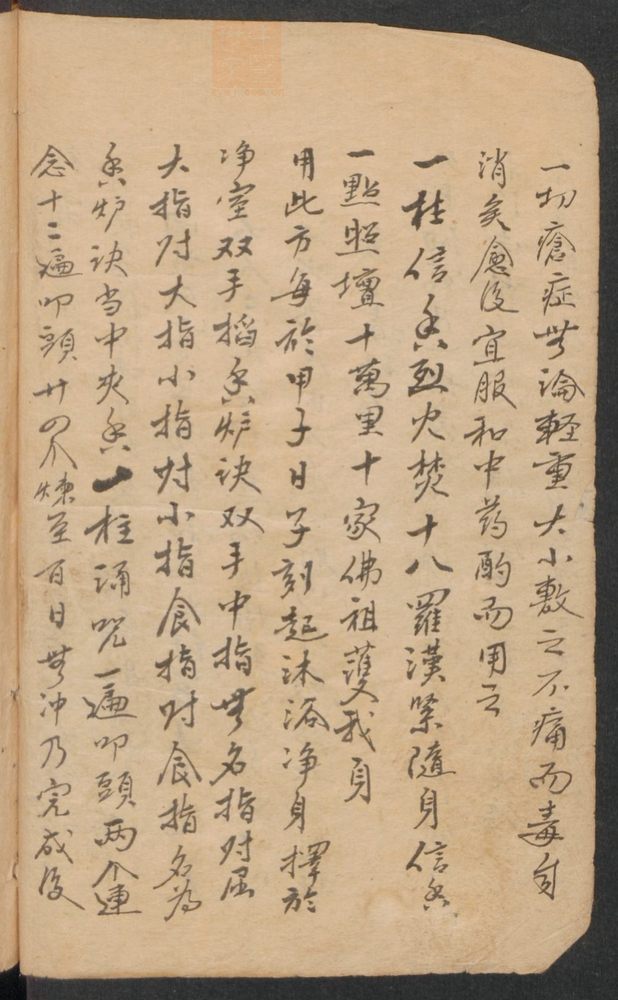 一切瘡症無論輕重大小敷之不痛而毒自
消矣愈後宜服和中药酌而用之
一柱信香烈火焚十八羅漢緊隨身信香
一點照壇十萬里十家佛祖護我身
用此方每於甲子日子刻起沐浴净身擇於
净室双手搯香炉诀双手中指無名指对屈
大指对大指小指对小指食指对食指名為
香炉诀当中夾香一柱誦咒一遍叩頭两个連
念十二遍叩頭廿四个煉至百日無冲乃完成後